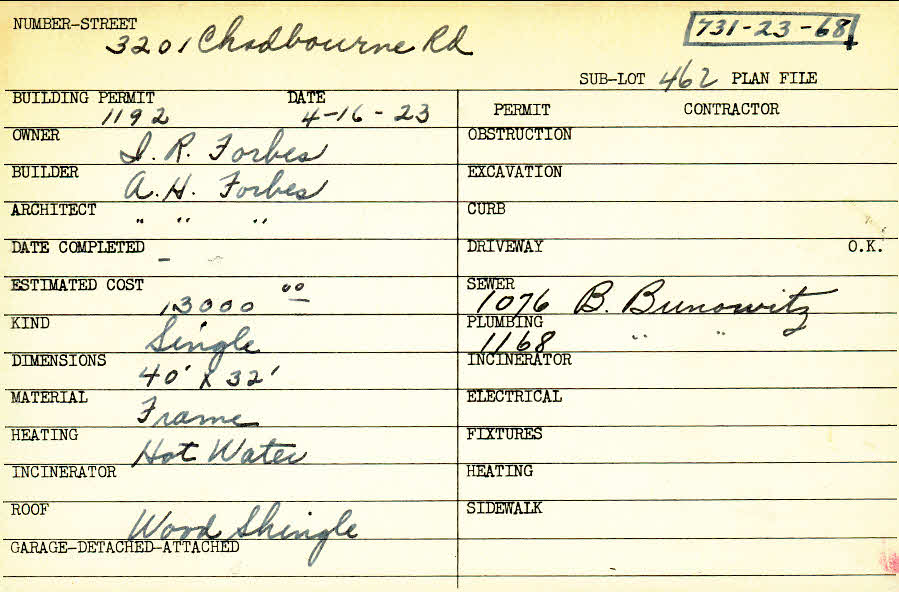 NUMBER-STREET
3201 Chadbourne Rd
731-23-68
SUB-LOT 462 PLAN FILE
BUILDING PERMIT DATE
1192 4-16-23
OWNER
I. R. Forbes
BUILDER
A. H. Forbes
ARCHITECT " " "
DATE COMPLETED
-
ESTIMATED COST
13000 00
KIND
Single
DIMENSIONS
40' X 32'
MATERIAL
Frame
HEATING
Hot Water
INCINERATOR
ROOF
Wood Shingle
GARAGE-DETACHED-ATTACHED
PERMIT CONTRACTOR
OBSTRUCTION
EXCAVATION
CURB
DRIVEWAY O.K.
SEWER
1076 B. Bunowitz
PLUMBING
1168 " "
INCINERATOR
ELECTRICAL
FIXTURES
HEATING
SIDEWALK